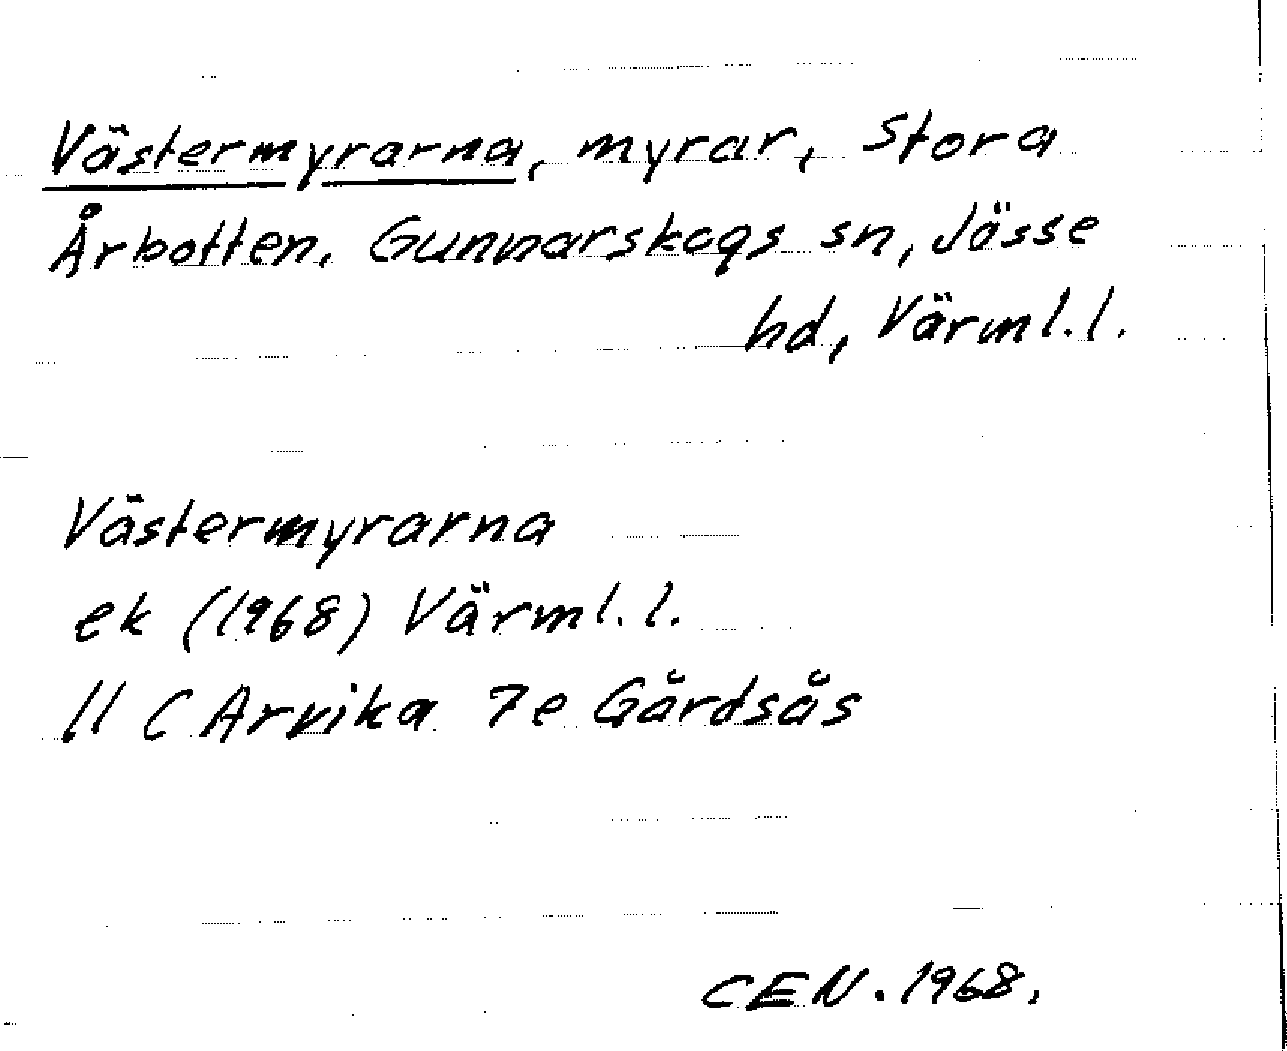 Västermyrarna, myrar, Stora
Årbotten, Gunnarskogs sn, Jösse
hd, Värml.l.
Västermyrarna
ek (1968) Värml.l.
11 C Arvika 7e Gårdsås
CEN. 1968.